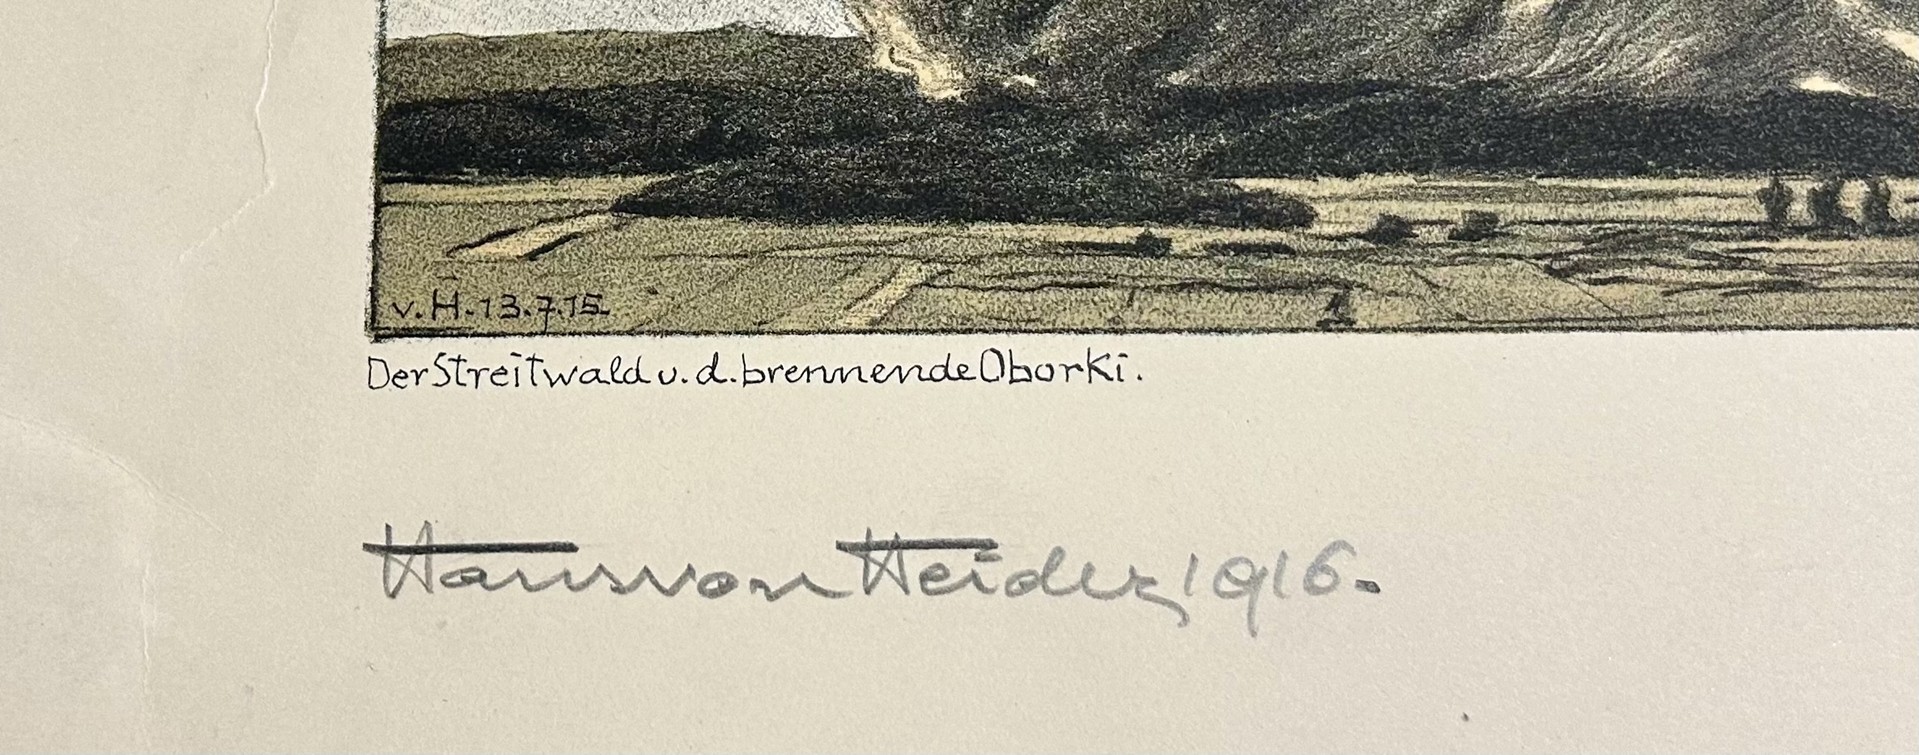 v. H. 13.7.15.
Der Streitwald u. d. brennende Oborki.
Hans von Heider, 1916.